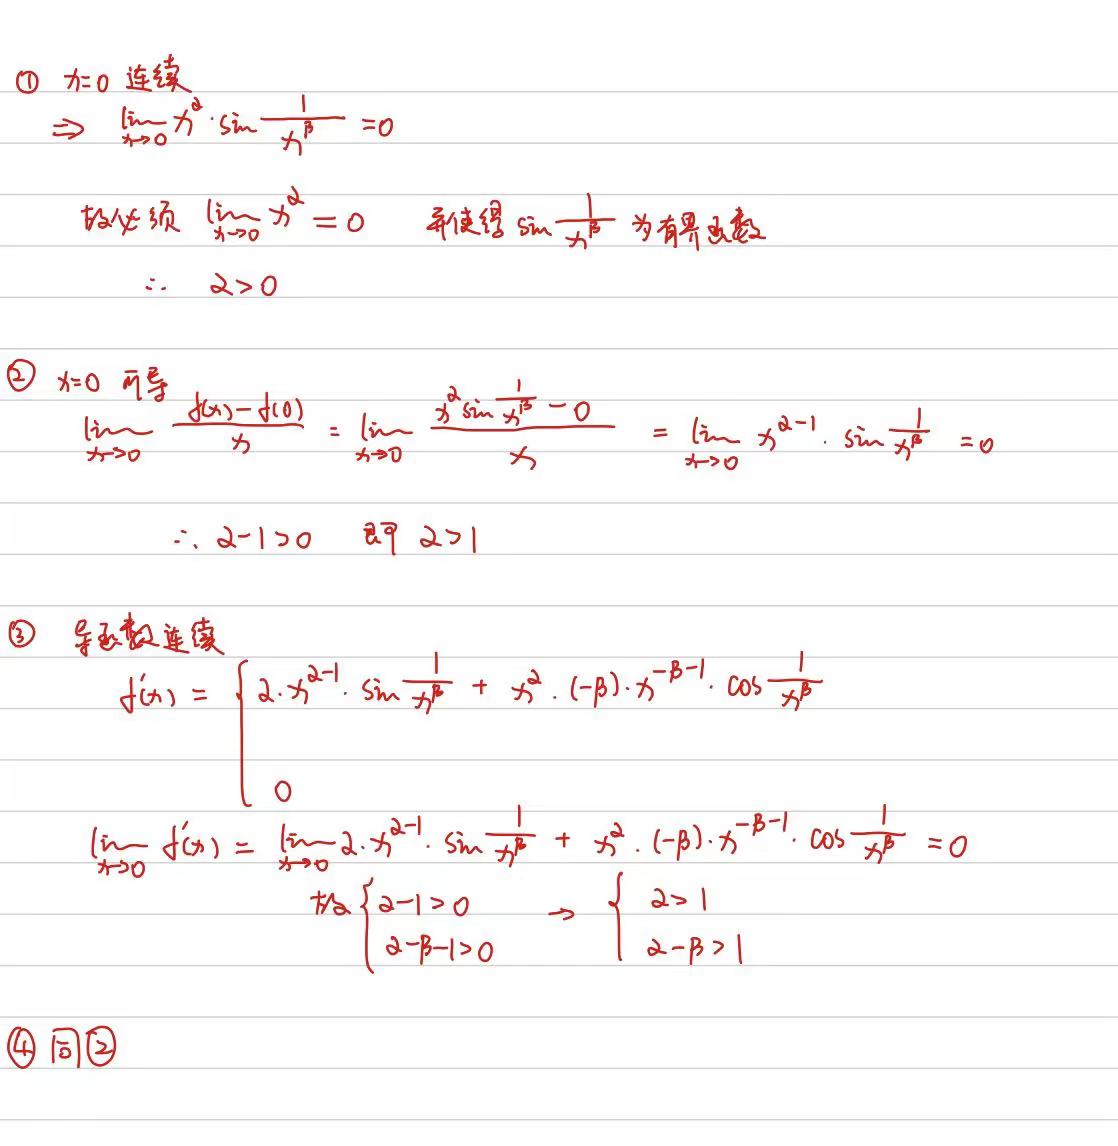 ① x=0 连续
⇒ lim_{x→0} x^α · sin 1/x^β = 0
故必须 lim_{x→0} x^α = 0 并使得 sin 1/x^β 为有界函数
∴ α>0
② x=0 可导
lim_{x→0} (f(x)-f(0))/x = lim_{x→0} (x^α sin 1/x^β - 0)/x = lim_{x→0} x^{α-1} · sin 1/x^β = 0
∴ α-1>0 即 α>1
③ 导函数连续
f'(x) = { α·x^{α-1} · sin 1/x^β + x^α · (-β)·x^{-β-1} · cos 1/x^β
0
lim_{x→0} f'(x) = lim_{x→0} α·x^{α-1} · sin 1/x^β + x^α · (-β)·x^{-β-1} · cos 1/x^β = 0
故 { α-1>0 → { α>1
α-β-1>0 α-β>1
④ 同②